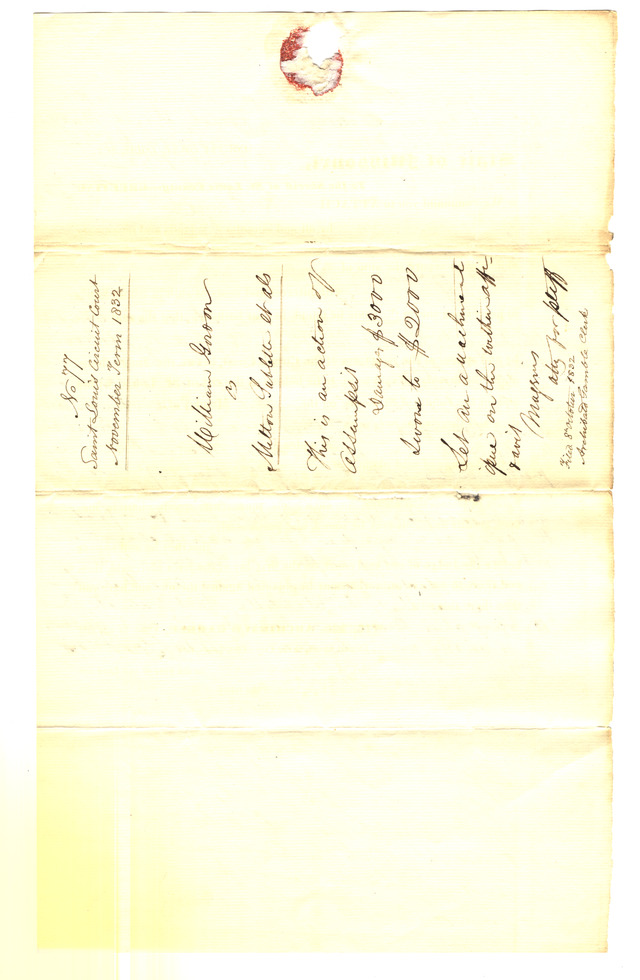 No 77
Saint Louis Circuit Court
November Term 1832
William Gordon
vs
Milton Sublette et als
This is an action of
Assumpsit
Damages $3000
Sworn to $2000
Let an attachment
issue on the within affi-
davit
Magenis
atty for pltff
Filed 8 October 1832
Archibald Gamble Clerk